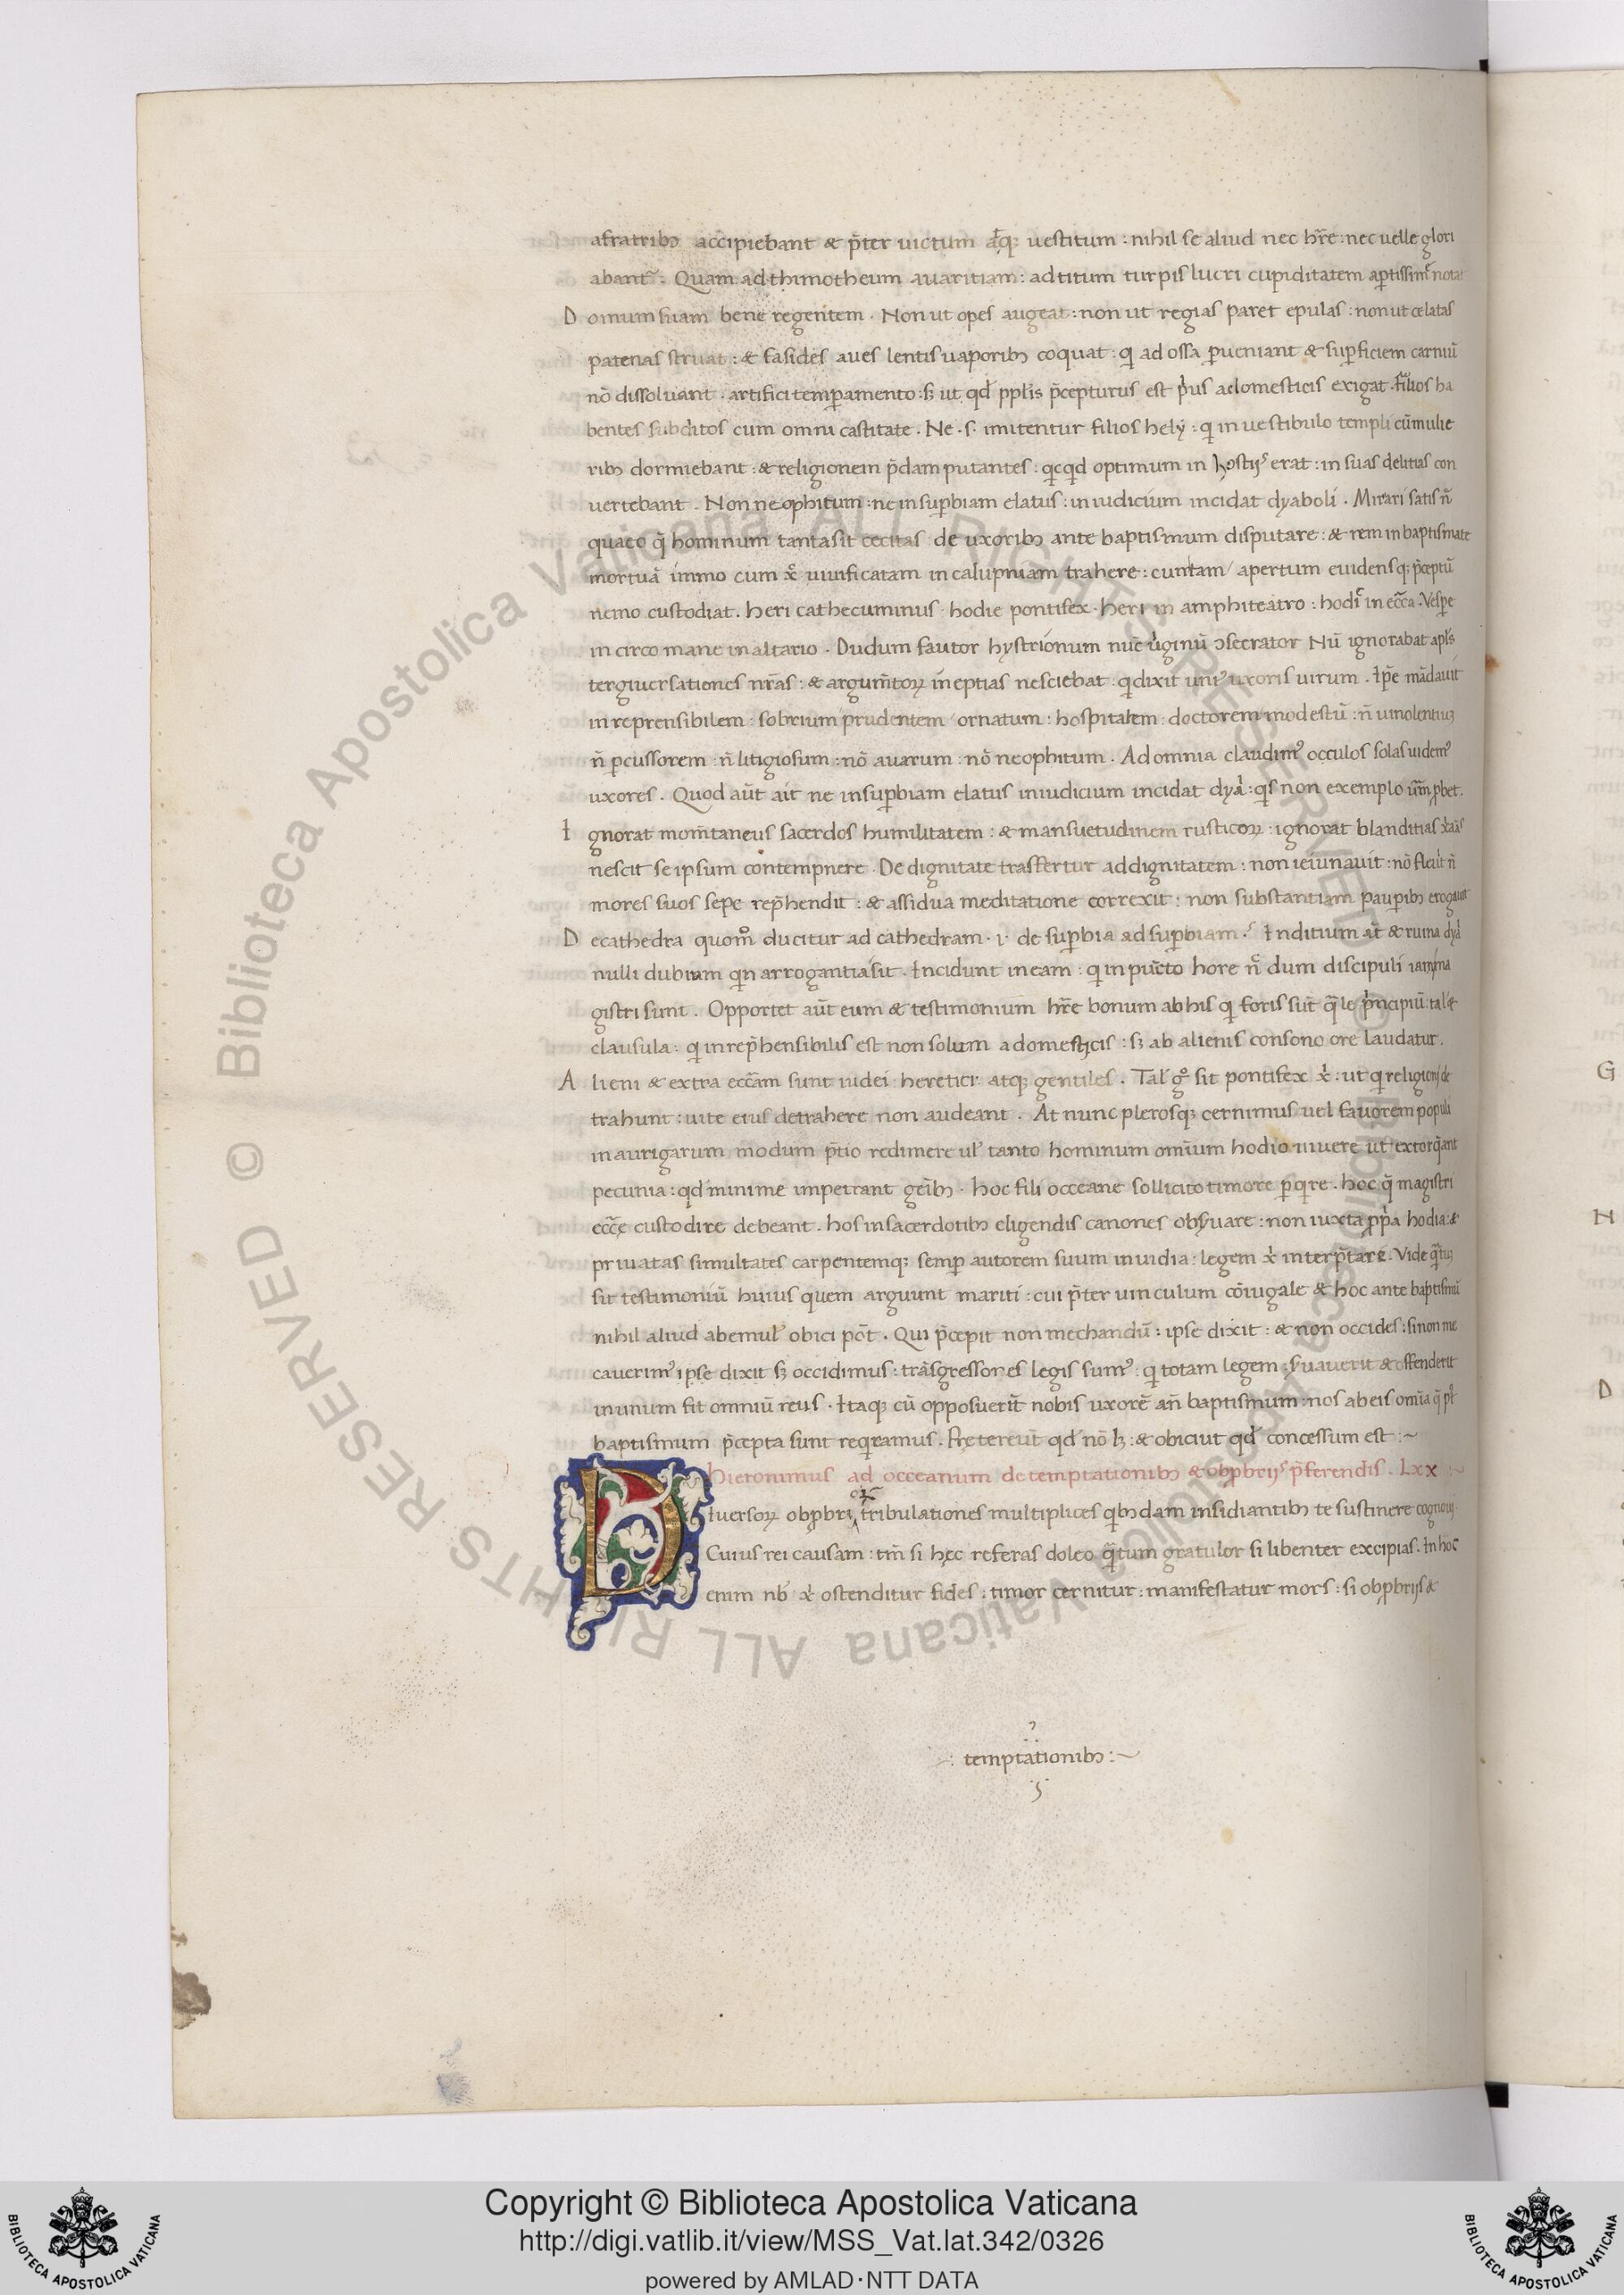 afratribꝫ accipiebant & p̄ter uictum atqꝫ uestitum : nihil se aliud nec hr̄e : nec uelle glori
abant̄ . Quam ad thimotheum auaritiam : ad titum turpis lucri cupiditatem aptissime notat
D omum suam bene regentem . Non ut opes augeat : non ut regias paret epulas : non ut celatas
patenas struat : & fasides aues lentis uaporibꝫ coquat : q̇ ad ossa ꝑueniant & suꝑficiem carniū
nō dissoluant . artifici temꝑamento : sꝫ ut qd̓ pplis p̄cepturus est pͥus a domesticis exigat . filios ha
bentes subditos cum omni castitate . Ne . s . imitentur filios hely : q̇ in uestibulo templi cū mulie
ribꝫ dormiebant : & religionem p̄dam putantes : qcqd optimum in hostijs erat : in suas delitias con
uertebant . Non neophitum : ne in suꝑbiam elatus : in iudicium incidat dyaboli . Mirari satis n̄
queo q̄ hominum tanta sit cecitas de uxoribꝫ ante baptismum disputare : & rem in baptismate
mortuā immo cum xͦ uiuificatam in calupniam trahere : cum tam apertum euidensqꝫ p̄ceptū
nemo custodiat . heri cathecuminus . hodie pontifex . heri in amphiteatro : hodie in ecc̄a . Vesꝑe
in circo mane in altario . Dudum fautor hystrionum nūc uͥginū ↄsecrator Nū ignorabat apl̄s
tergiuersationes nr̄as : & argum̄toꝝ ineptias nesciebat : q̇ dixit uniꝰ uxoris uirum . Ip̄e mādauit
inreprensibilem : sobrium prudentem ornatum : hospitalem : doctorem modestū : n̄ uinolentum
n̄ ꝑcussorem : n̄ litigiosum : nō auarum : nō neophitum . Ad omnia claudimꝰ occulos solas uidemꝰ
uxores . Quod aūt ait ne in suꝑbiam elatus in iudicium incidat dyaͥ : qͥs non exemplo uerum ꝓbet .
I gnorat mom̄taneus sacerdos humilitatem : & mansuetudinem rusticoꝝ : ignorat blanditias
nescit se ipsum contempnere . De dignitate trasfertur ad dignitatem : non ieiunauit : nō fleuit n̄
mores suos sepe rep̄hendit : & assidua meditatione correxit : non substantiam pauꝑibꝫ erogauit
D ecathedra quomͦ ducitur ad cathedram . i . de suꝑbia ad suꝑbiam . Inditium aūt & ruina dyaͥ
nulli dubium qn arrogantia sit . Incidunt in eam : q̇ in pūcto hore n̄ dum discipuli iam ma
gistri sunt . Opportet aūt eum & testimonium hr̄e bonum ab his q̇ foris sūt q̄le pͥncipiū : tal̓ &
clausula : q̇ inrep̄hensibilis est non solum a domesticis : sꝫ ab alienis consono ore laudatur .
A lieni & extra ecc̄am sunt iudei heretici atqꝫ gentiles . Tal̓ gͦ sit pontifex xͥ : ut q̇ religioni de
trahunt : uite eius detrahere non audeant . At nunc plerosqꝫ cernimus uel fauorem populi
in aurigarum modum p̄tio redimere ul̓ tanto hominum om̄ium hodio uiuere ut extorq̄ant
pecunia : qd̓ minime impetrant gētibꝫ . hoc fili occeane sollicito timore ꝑqͥre . hoc q̄ magistri
ecc̄e custodire debeant . hos in sacerdotibꝫ eligendis canones obsꝰuare : non iuxta ꝓpͥa hodia : &
priuatas simultates carpentemqꝫ semꝑ autorem suum inuidia : legem xͥ interp̄tare . Vide q̄ntum
sit testimoniū huius quem arguunt mariti : cui p̄ter uinculum cōiugale & hoc ante baptismū
nihil aliud ab emul̓ obici pōt . Qui p̄cepit non mechandū : ipse dixit : & non occides : si non me
cauerimꝰ ipse dixit sꝫ occidimus : trāsgressores legis sumꝰ : q̇ totam legem sꝰuauerit & offenderit
in unum fit omniū reus . Itaqꝫ cū opposuerīt nobis uxorē an̄ baptismum : nos ab eis omīa q̄ pꝰt
baptismum p̄cepta sunt reqͥramus . Pretereūt qd̓ nō lꝫ : & obiciūt qd̓ concessum est : ~
hieronimus ad occeanum de temptationibꝫ & obꝓbrijs p̄ferendis . Lxx : ~
D iuersoꝝ obꝓbrioꝝ tribulationes multiplices qͥbꝫdam insidiantibꝫ te sustinere cognoui
Cuius rei causam : tm̄ si hęc referas doleo q̄ntum gratulor si libenter excipias . In hoc
enim nb̄ xͥ ostenditur fides : timor cernitur : manifestatur mors : si obꝓbrijs &
: temptationibꝫ : ~
G
H
D
© Biblioteca Apostolica Vaticana ALL RIGHTS RESERVED © Biblioteca Apostolica Vaticana ALL RIGHTS RESERVED
BIBLIOTECA APOSTOLICA VATICANA
Copyright © Biblioteca Apostolica Vaticana
http://digi.vatlib.it/view/MSS_Vat.lat.342/0326
powered by AMLAD·NTT DATA
BIBLIOTECA APOSTOLICA VATICANA